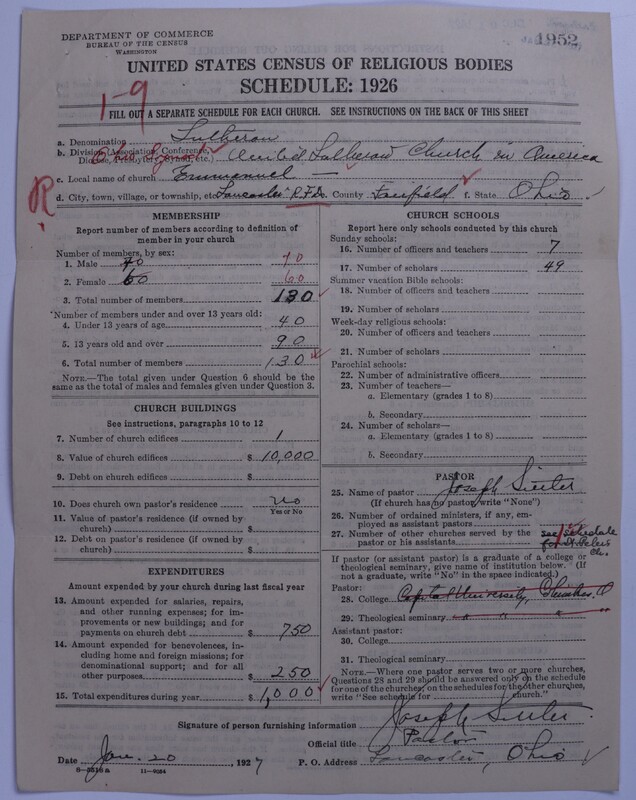 DEPARTMENT OF COMMERCE
BUREAU OF THE CENSUS
WASHINGTON
1952
UNITED STATES CENSUS OF RELIGIOUS BODIES
SCHEDULE: 1926
1-9
FILL OUT A SEPARATE SCHEDULE FOR EACH CHURCH. SEE INSTRUCTIONS ON THE BACK OF THIS SHEET
a. Denomination Lutheran
b. Division (Association, Conference, United Lutheran Church in America
c. Local name of church Emmanuel
R
d. City, town, village, or township, etc. Lancaster R.F.D. e. County Fairfield f. State Ohio
MEMBERSHIP
Report number of members according to definition of
member in your church
Number of members, by sex:
1. Male 70 70
2. Female 60 60
3. Total number of members 130
Number of members under and over 13 years old:
4. Under 13 years of age 40
5. 13 years old and over 90
6. Total number of members 130
NOTE.—The total given under Question 6 should be the
same as the total of males and females given under Question 3.
CHURCH BUILDINGS
See instructions, paragraphs 10 to 12
7. Number of church edifices 1
8. Value of church edifices $ 10,000
9. Debt on church edifices $
10. Does church own pastor's residence? No
Yes or No
11. Value of pastor's residence (if owned by
church) $
12. Debt on pastor's residence (if owned by
church) $
EXPENDITURES
Amount expended by your church during last fiscal year
13. Amount expended for salaries, repairs,
and other running expenses; for im-
provements or new buildings; and for
payments on church debt $ 750
14. Amount expended for benevolences, in-
cluding home and foreign missions; for
denominational support; and for all
other purposes $ 250
15. Total expenditures during year $ 1,000
CHURCH SCHOOLS
Report here only schools conducted by this church
Sunday schools:
16. Number of officers and teachers 7
17. Number of scholars 49
Summer vacation Bible schools:
18. Number of officers and teachers
19. Number of scholars
Week-day religious schools:
20. Number of officers and teachers
21. Number of scholars
Parochial schools:
22. Number of administrative officers
23. Number of teachers—
a. Elementary (grades 1 to 8)
b. Secondary
24. Number of scholars—
a. Elementary (grades 1 to 8)
b. Secondary
PASTOR
25. Name of pastor Joseph
(If church has no pastor, write "None")
26. Number of ordained ministers, if any, em-
ployed as assistant pastors
27. Number of other churches served by the see schedule
pastor or his assistants for St. Peters
Ch.
If pastor (or assistant pastor) is a graduate of a college or
theological seminary, give name of institution below. (If
not a graduate, write "No" in the space indicated.)
Pastor:
28. College Capital University, Columbus, O
29. Theological seminary " " "
Assistant pastor:
30. College
31. Theological seminary
NOTE.—Where one pastor serves two or more churches,
Questions 28 and 29 should be answered only on the schedule
for one of the churches; on the schedules for the other churches,
write "See schedule for church."
Signature of person furnishing information Joseph
Official title Pastor
Date Jan. 20, 1927 P. O. Address Lancaster, Ohio
8—5318a 11—9054